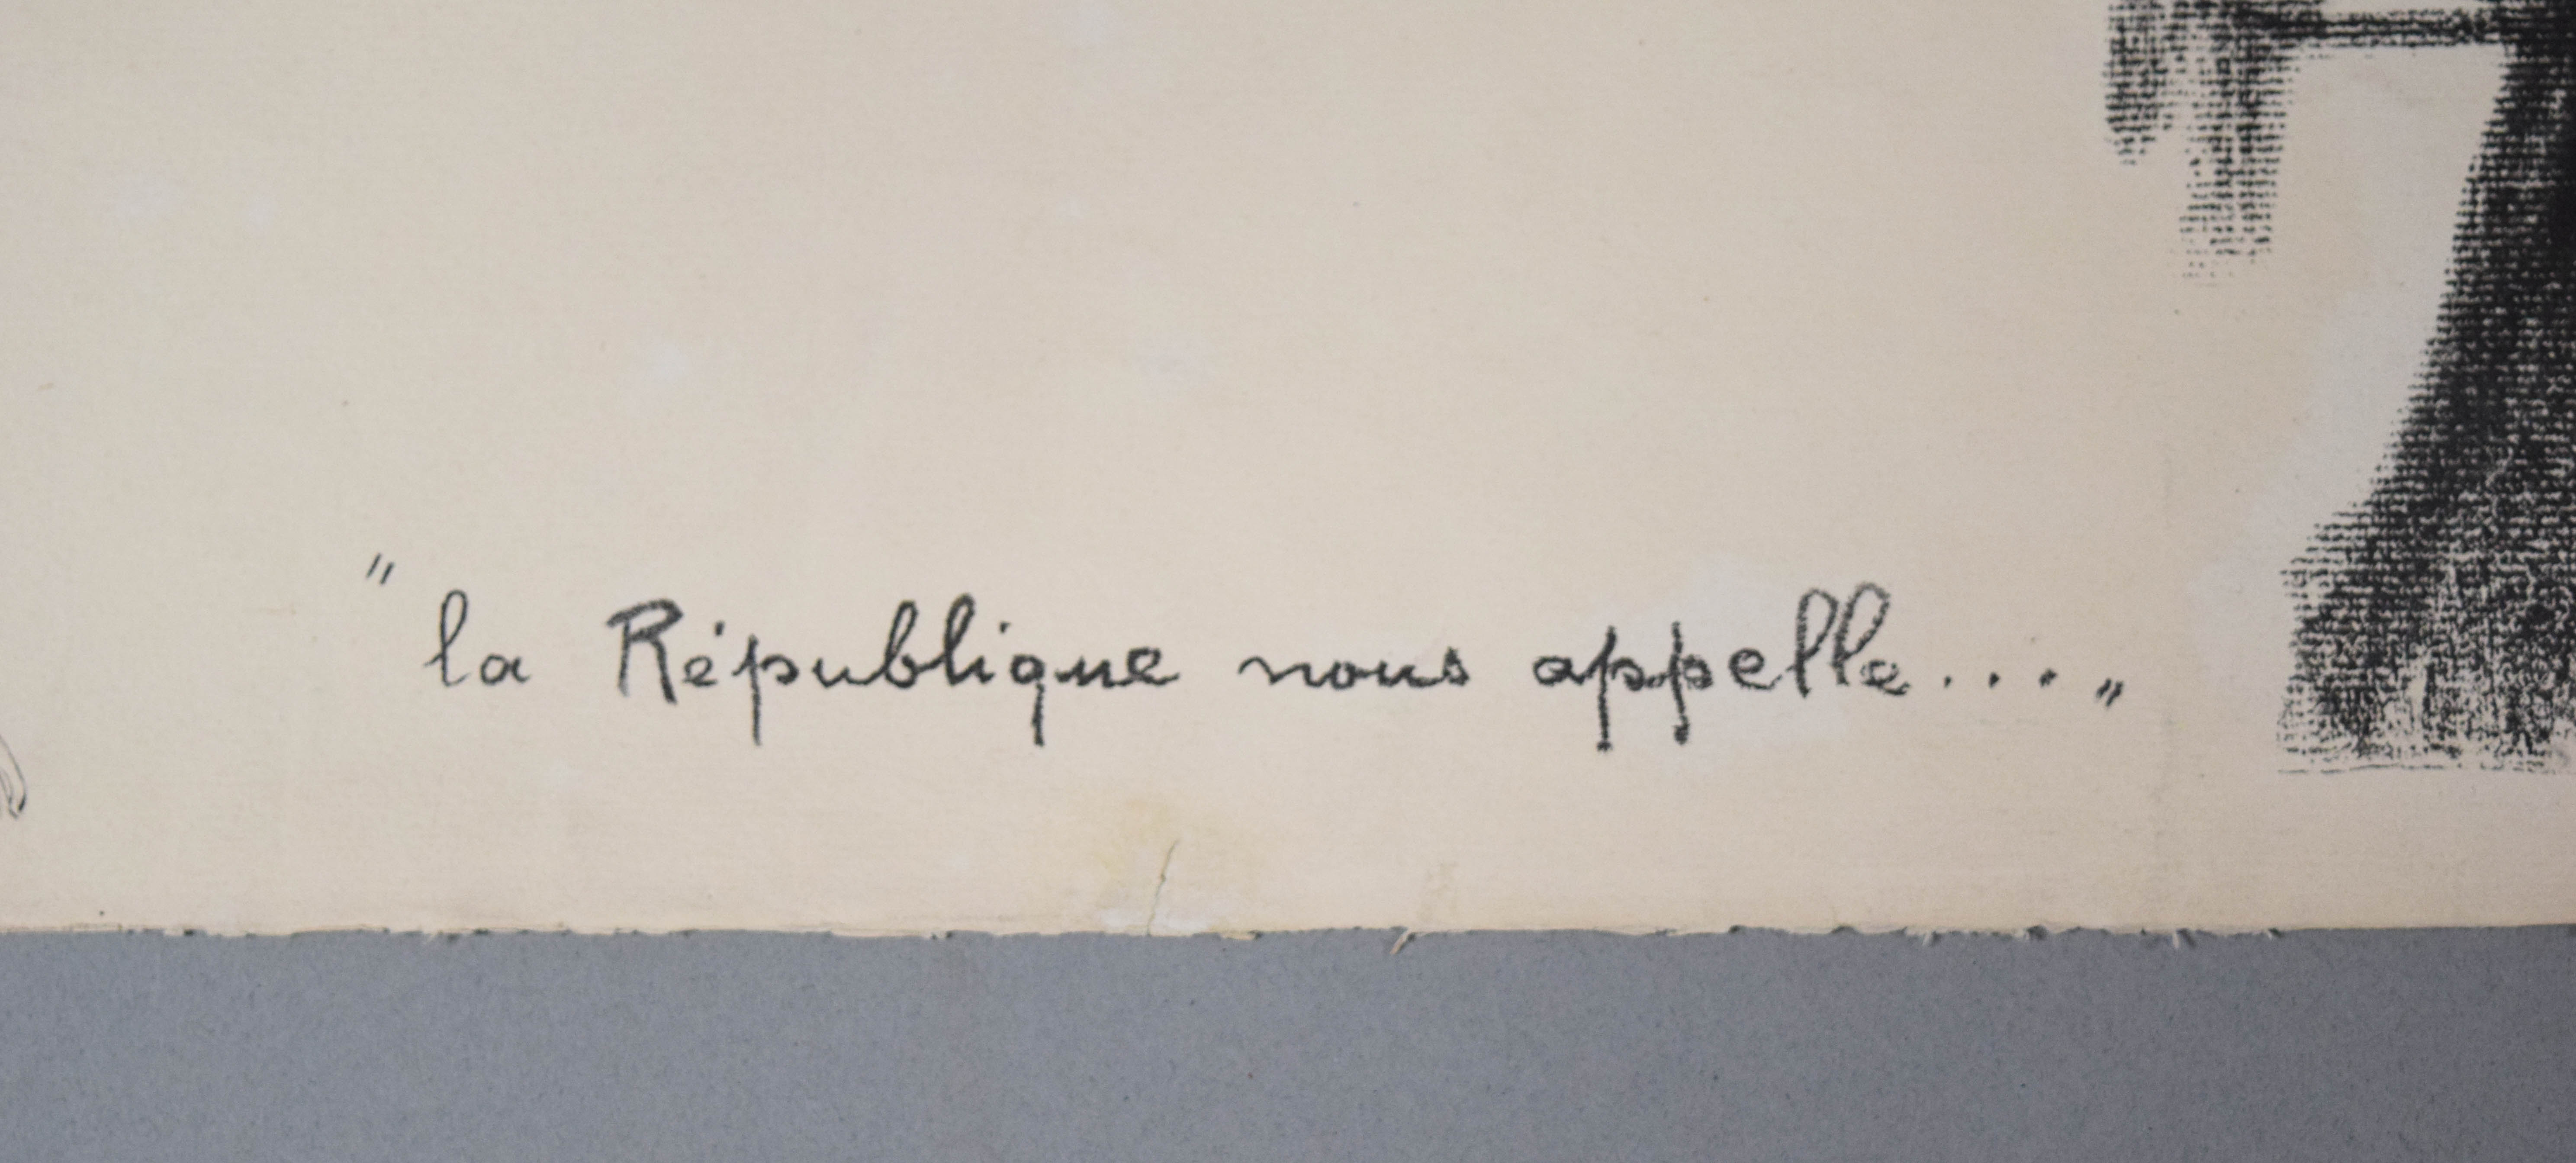 "la République nous appelle...."